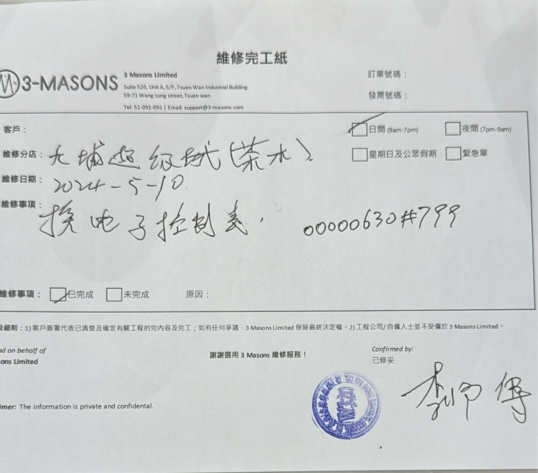 維修完工紙
3-MASONS
3 Masons Limited
Suite 520, Unit A, 5/F, Tsuen Wan Industrial Building
59-71 Wang Lung street, Tsuen wan
Tel: 51-091-091 | Email: support@3-masons.com
訂單號碼：
發票號碼：
客戶：
日間 (9am-7pm)
夜間 (7pm-9am)
維修分店： 大埔超級城(茶水)
星期日及公眾假期
緊急單
維修日期： 2024-5-10
維修事項： 換电子控制表. 00000630#799
維修事項：
已完成
未完成
原因：
細則：1) 客戶簽署代表已清楚及確定有關工程的完內容及完工；如有任何爭議，3 Masons Limited 保留最終決定權。2) 工程公司/自僱人士並不受僱於 3 Masons Limited。
on behalf of
Limited
謝謝選用 3 Masons 維修服務！
Confirmed by:
已修妥
李师傅
The information is private and confidental.